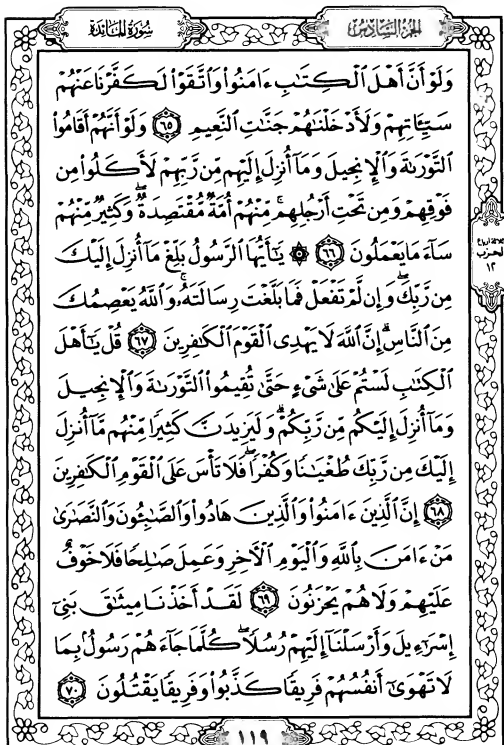 سُورَةُ المَائدة
الجزء السَّادِسُ
وَلَوْ أَنَّ أَهْلَ ٱلْكِتَٰبِ ءَامَنُوا۟ وَٱتَّقَوْا۟ لَكَفَّرْنَا عَنْهُمْ
سَيِّـَٔاتِهِمْ وَلَأَدْخَلْنَٰهُمْ جَنَّٰتِ ٱلنَّعِيمِ ٦٥ وَلَوْ أَنَّهُمْ أَقَامُوا۟
ٱلتَّوْرَىٰةَ وَٱلْإِنجِيلَ وَمَآ أُنزِلَ إِلَيْهِم مِّن رَّبِّهِمْ لَأَكَلُوا۟ مِن
فَوْقِهِمْ وَمِن تَحْتِ أَرْجُلِهِم ۚ مِّنْهُمْ أُمَّةٌ مُّقْتَصِدَةٌ ۖ وَكَثِيرٌ مِّنْهُمْ
سَآءَ مَا يَعْمَلُونَ ٦٦ ۞ يَٰٓأَيُّهَا ٱلرَّسُولُ بَلِّغْ مَآ أُنزِلَ إِلَيْكَ
مِن رَّبِّكَ ۖ وَإِن لَّمْ تَفْعَلْ فَمَا بَلَّغْتَ رِسَالَتَهُۥ ۚ وَٱللَّهُ يَعْصِمُكَ
مِنَ ٱلنَّاسِ ۗ إِنَّ ٱللَّهَ لَا يَهْدِى ٱلْقَوْمَ ٱلْكَٰفِرِينَ ٦٧ قُلْ يَٰٓأَهْلَ
ٱلْكِتَٰبِ لَسْتُمْ عَلَىٰ شَىْءٍ حَتَّىٰ تُقِيمُوا۟ ٱلتَّوْرَىٰةَ وَٱلْإِنجِيلَ
وَمَآ أُنزِلَ إِلَيْكُم مِّن رَّبِّكُمْ ۗ وَلَيَزِيدَنَّ كَثِيرًا مِّنْهُم مَّآ أُنزِلَ
إِلَيْكَ مِن رَّبِّكَ طُغْيَٰنًا وَكُفْرًا ۖ فَلَا تَأْسَ عَلَى ٱلْقَوْمِ ٱلْكَٰفِرِينَ
٦٨ إِنَّ ٱلَّذِينَ ءَامَنُوا۟ وَٱلَّذِينَ هَادُوا۟ وَٱلصَّٰبِـُٔونَ وَٱلنَّصَٰرَىٰ
مَنْ ءَامَنَ بِٱللَّهِ وَٱلْيَوْمِ ٱلْءَاخِرِ وَعَمِلَ صَٰلِحًا فَلَا خَوْفٌ
عَلَيْهِمْ وَلَا هُمْ يَحْزَنُونَ ٦٩ لَقَدْ أَخَذْنَا مِيثَٰقَ بَنِىٓ
إِسْرَٰٓءِيلَ وَأَرْسَلْنَآ إِلَيْهِمْ رُسُلًا ۖ كُلَّمَا جَآءَهُمْ رَسُولٌۢ بِمَا
لَا تَهْوَىٰٓ أَنفُسُهُمْ فَرِيقًا كَذَّبُوا۟ وَفَرِيقًا يَقْتُلُونَ ٧٠
ثلاثة أرباع
الحزب
١٢
١١٩